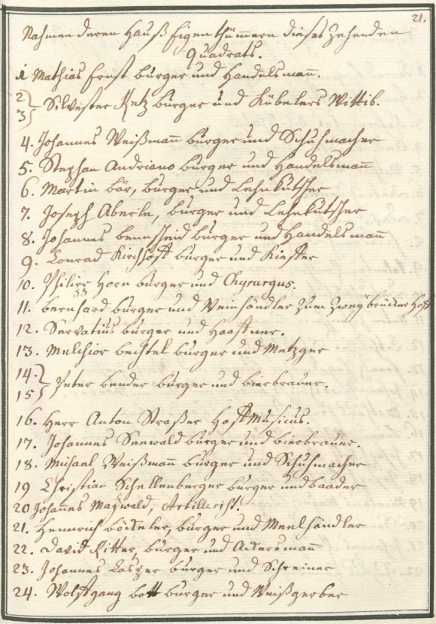 21.
Nahmen deren Hauß Eigenthümmern dießes Zehenden
Quadrats.
1 Mathias Ernst burger und Handelsmann.
2
3 } Silvester Metz burger und Küblers Wittib.
4. Johannes Weißmann burger und Schuhmacher
5. Stephan Andriano burger und Handelsmann
6. Martin bär, burger und Lehnkutscher
7. Joseph Aberle, burger und Lehnkutscher
8. Johannes burger und Handelsmann
9. Conrad Kirchhoff burger und Kiefer
10. Philipp Horn burger und Chyrurgus.
11. bernhard burger und Weinhändler zum Zweybrücker Hof
12. Servatius burger und
13. Melchior bechtel burger und Metzger
14.
15 } Peter bender burger und bierbrauer.
16. Herr Anton Straßer Hoff Musicus.
17. Johannes Seewald burger und bierbrauer.
18. Michael Weißmann burger und Schuhmacher
19 Christian Schallenberger burger und baader
20 Johannes Maywald, Artillerist.
21. Henrich burger und Meelhändler
22. David Ritter, burger und Ackersmann
23. Johannes burger und Schreiner
24. Wolfgang bott burger und Weißgerber